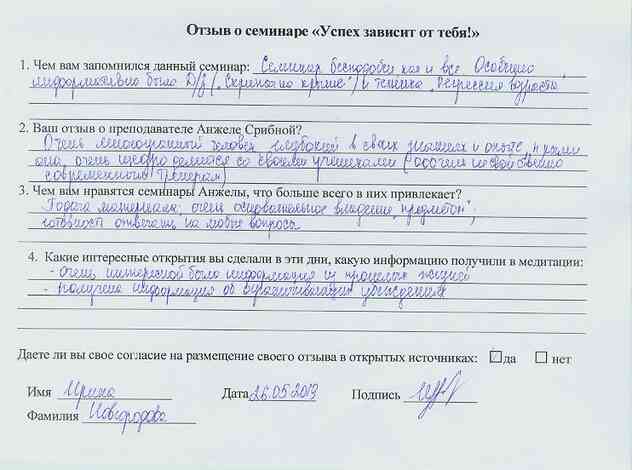 Отзыв о семинаре «Успех зависит от тебя!»
1. Чем вам запомнился данный семинар: Семинар бесподобен как и все. Особенно
информативно было Д/з и техника „Регрессия возраста
2. Ваш отзыв о преподавателе Анжеле Срибной?
Очень многогранный человек глубокий в своих знаниях и опыте, к тому
она, очень щедро делится со своими учениками
современным
3. Чем вам нравятся семинары Анжелы, что больше всего в них привлекает?
материала; очень основательное владение „предметом“;
готовность отвечать на любые вопросы
4. Какие интересные открытия вы сделали в эти дни, какую информацию получили в медитации:
- Очень интересной была информация из прошлых жизней
- получена информация об ограничивающих убеждениях
Даете ли вы свое согласие на размещение своего отзыва в открытых источниках: да нет
Имя Ирина Дата 26.05.2013 Подпись
Фамилия Новгородова